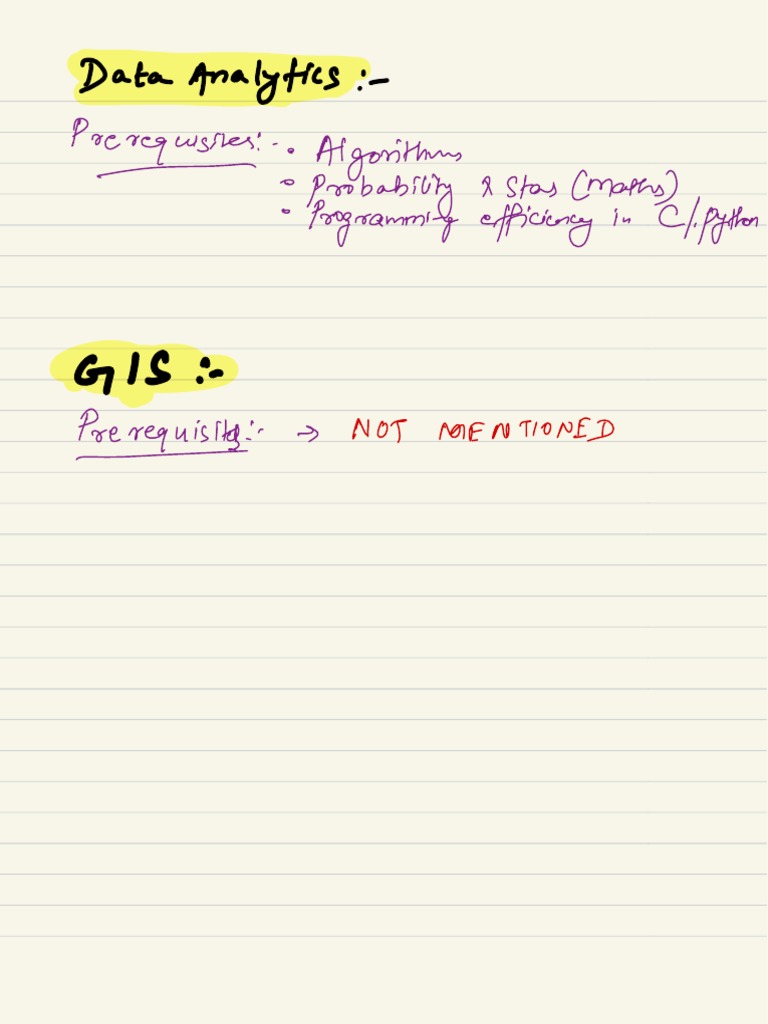 Data Analytics :-
Prerequisites:- • Algorithms
• Probability & Stas (Maths)
• Programming efficiency in C/.Python
GIS :-
Prerequisites:- → NOT MENTIONED